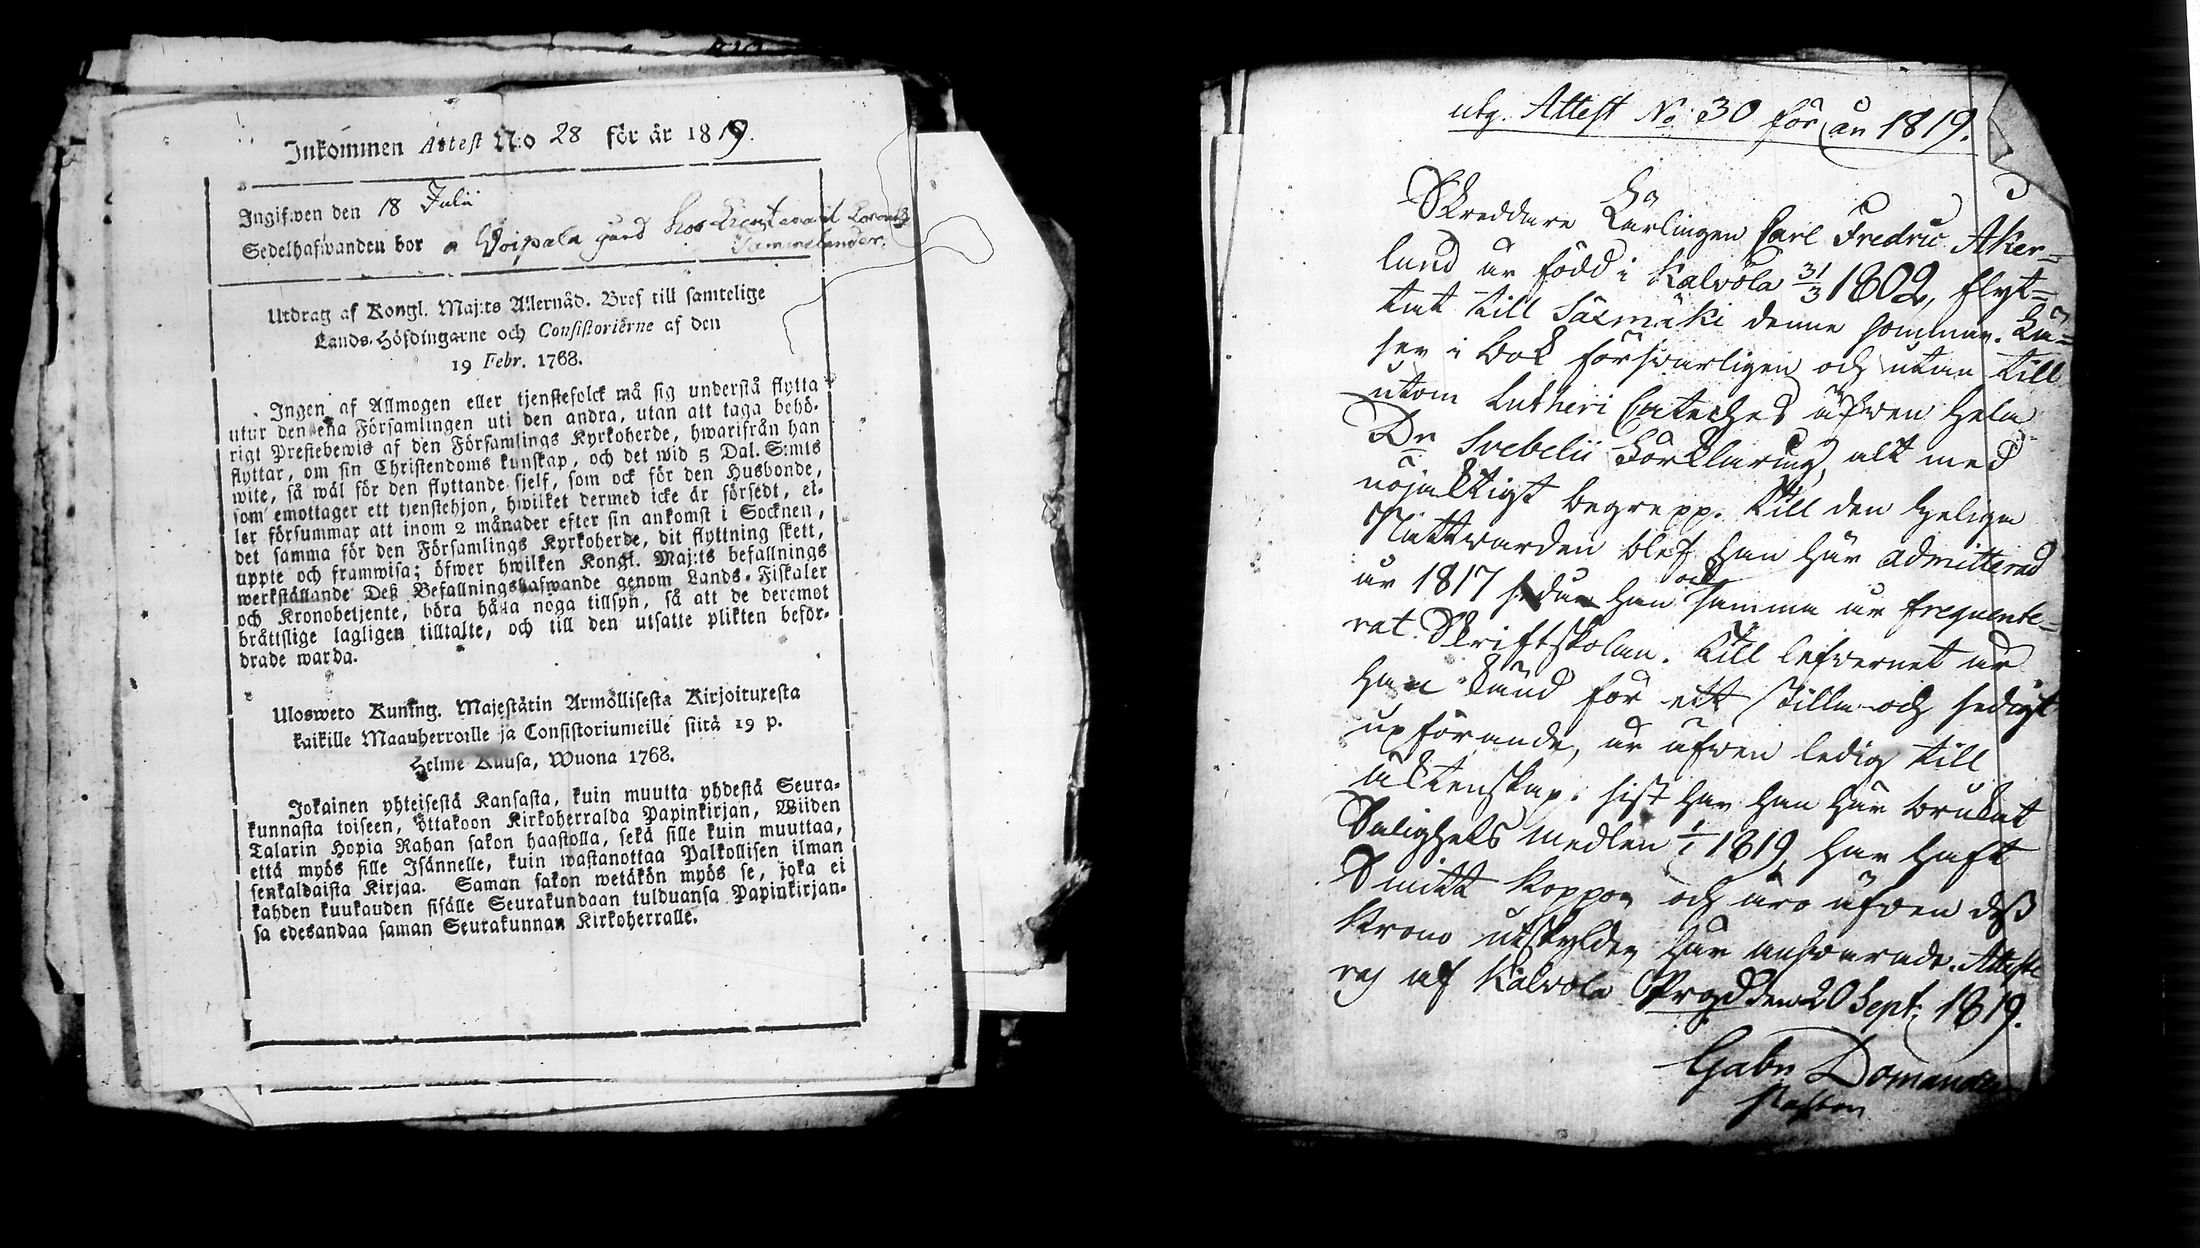 Inkommen Attest N:o 28 för år 1819.
Ingifwen den 18 Julii
Sedelhafwanden bor a Woipala gård hos Lieutenant
Utdrag af Kongl. Maj:ts Allernåd. Bref till samtelige
Lands-Höfdingarne och Consistorierne af den
19 Febr. 1768.
Ingen af Allmogen eller tjenstefolck må sig understå flytta
utur den ena Församlingen uti den andra, utan att taga behö-
rigt Prestebewis af den Församlings Kyrkoherde, hwarifrån han
flyttar, om sin Christendoms kunskap, och det wid 5 Dal. S:mts
wite, så wäl för den flyttande sjelf, som ock för den Husbonde,
som emottager ett tjenstehjon, hwilket dermed icke är försedt, el-
ler försummar att inom 2 månader efter sin ankomst i Socknen,
det samma för den Församlings Kyrkoherde, dit flyttning skett,
uppte och framwisa; öfwer hwilken Kongl. Maj:ts befallnings
werkställande Deß Befallningshafwande genom Lands-Fiskaler
och Kronobetjente, böra hålla noga tillsyn, så att de deremot
bråttslige lagligen tilltalte, och till den utsatte plikten befor-
drade warda.
Ulosweto Kuning. Majestätin Armollisesta Kirjoituxesta
kaikille Maanherroille ja Consistoriumeille siitä 19 p.
Helme Kuusa, Wuona 1768.
Jokainen yhteisestä Kansasta, kuin muutta yhdestä Seura-
kunnasta toiseen, ottakoon Kirkoherralda Papinkirjan, Wiiden
Talarin Hopia Rahan sakon haastolla, sekä sille kuin muuttaa,
että myös sille Isännelle, kuin wastanottaa Palkollisen ilman
senkaldaista Kirjaa. Saman sakon wetäkön myös se, joka ei
kahden kuukauden sisälle Seurakundaan tulduansa Papinkirjan-
sa edesandaa saman Seurakunnan Kirkoherralle.
utg. Attest No 30 för år 1819.
Skreddare Lärlingen Carl Fredric Åker-
lund är född i Kalvola 31/3 1802, flyt-
tat till Säxmäki denne sommar. Lä-
ser i bok försvarligen och utan till
utom Lutheri Cateches äfwen hela
Dr Svebelii Förklaring, alt med
nöjaktigt begrepp. Till den heliga
Nattwarden blef han här admitterad
år 1817 sedan han ock samma år frequente-
rat Skriftskolan. Till lefwernet är
han känd för ett stilla och sedigt
upförande, är äfwen ledig till
äktenskap. sist har han här brukat
Salighets medlen 1/1 1819, har haft
Smitt Koppor och äro äfwen deß
Krono utskylder här answarade. Atteste-
ras af Kalvola Prgd den 20 Sept. 1819.
Gabr Domander
Pastor